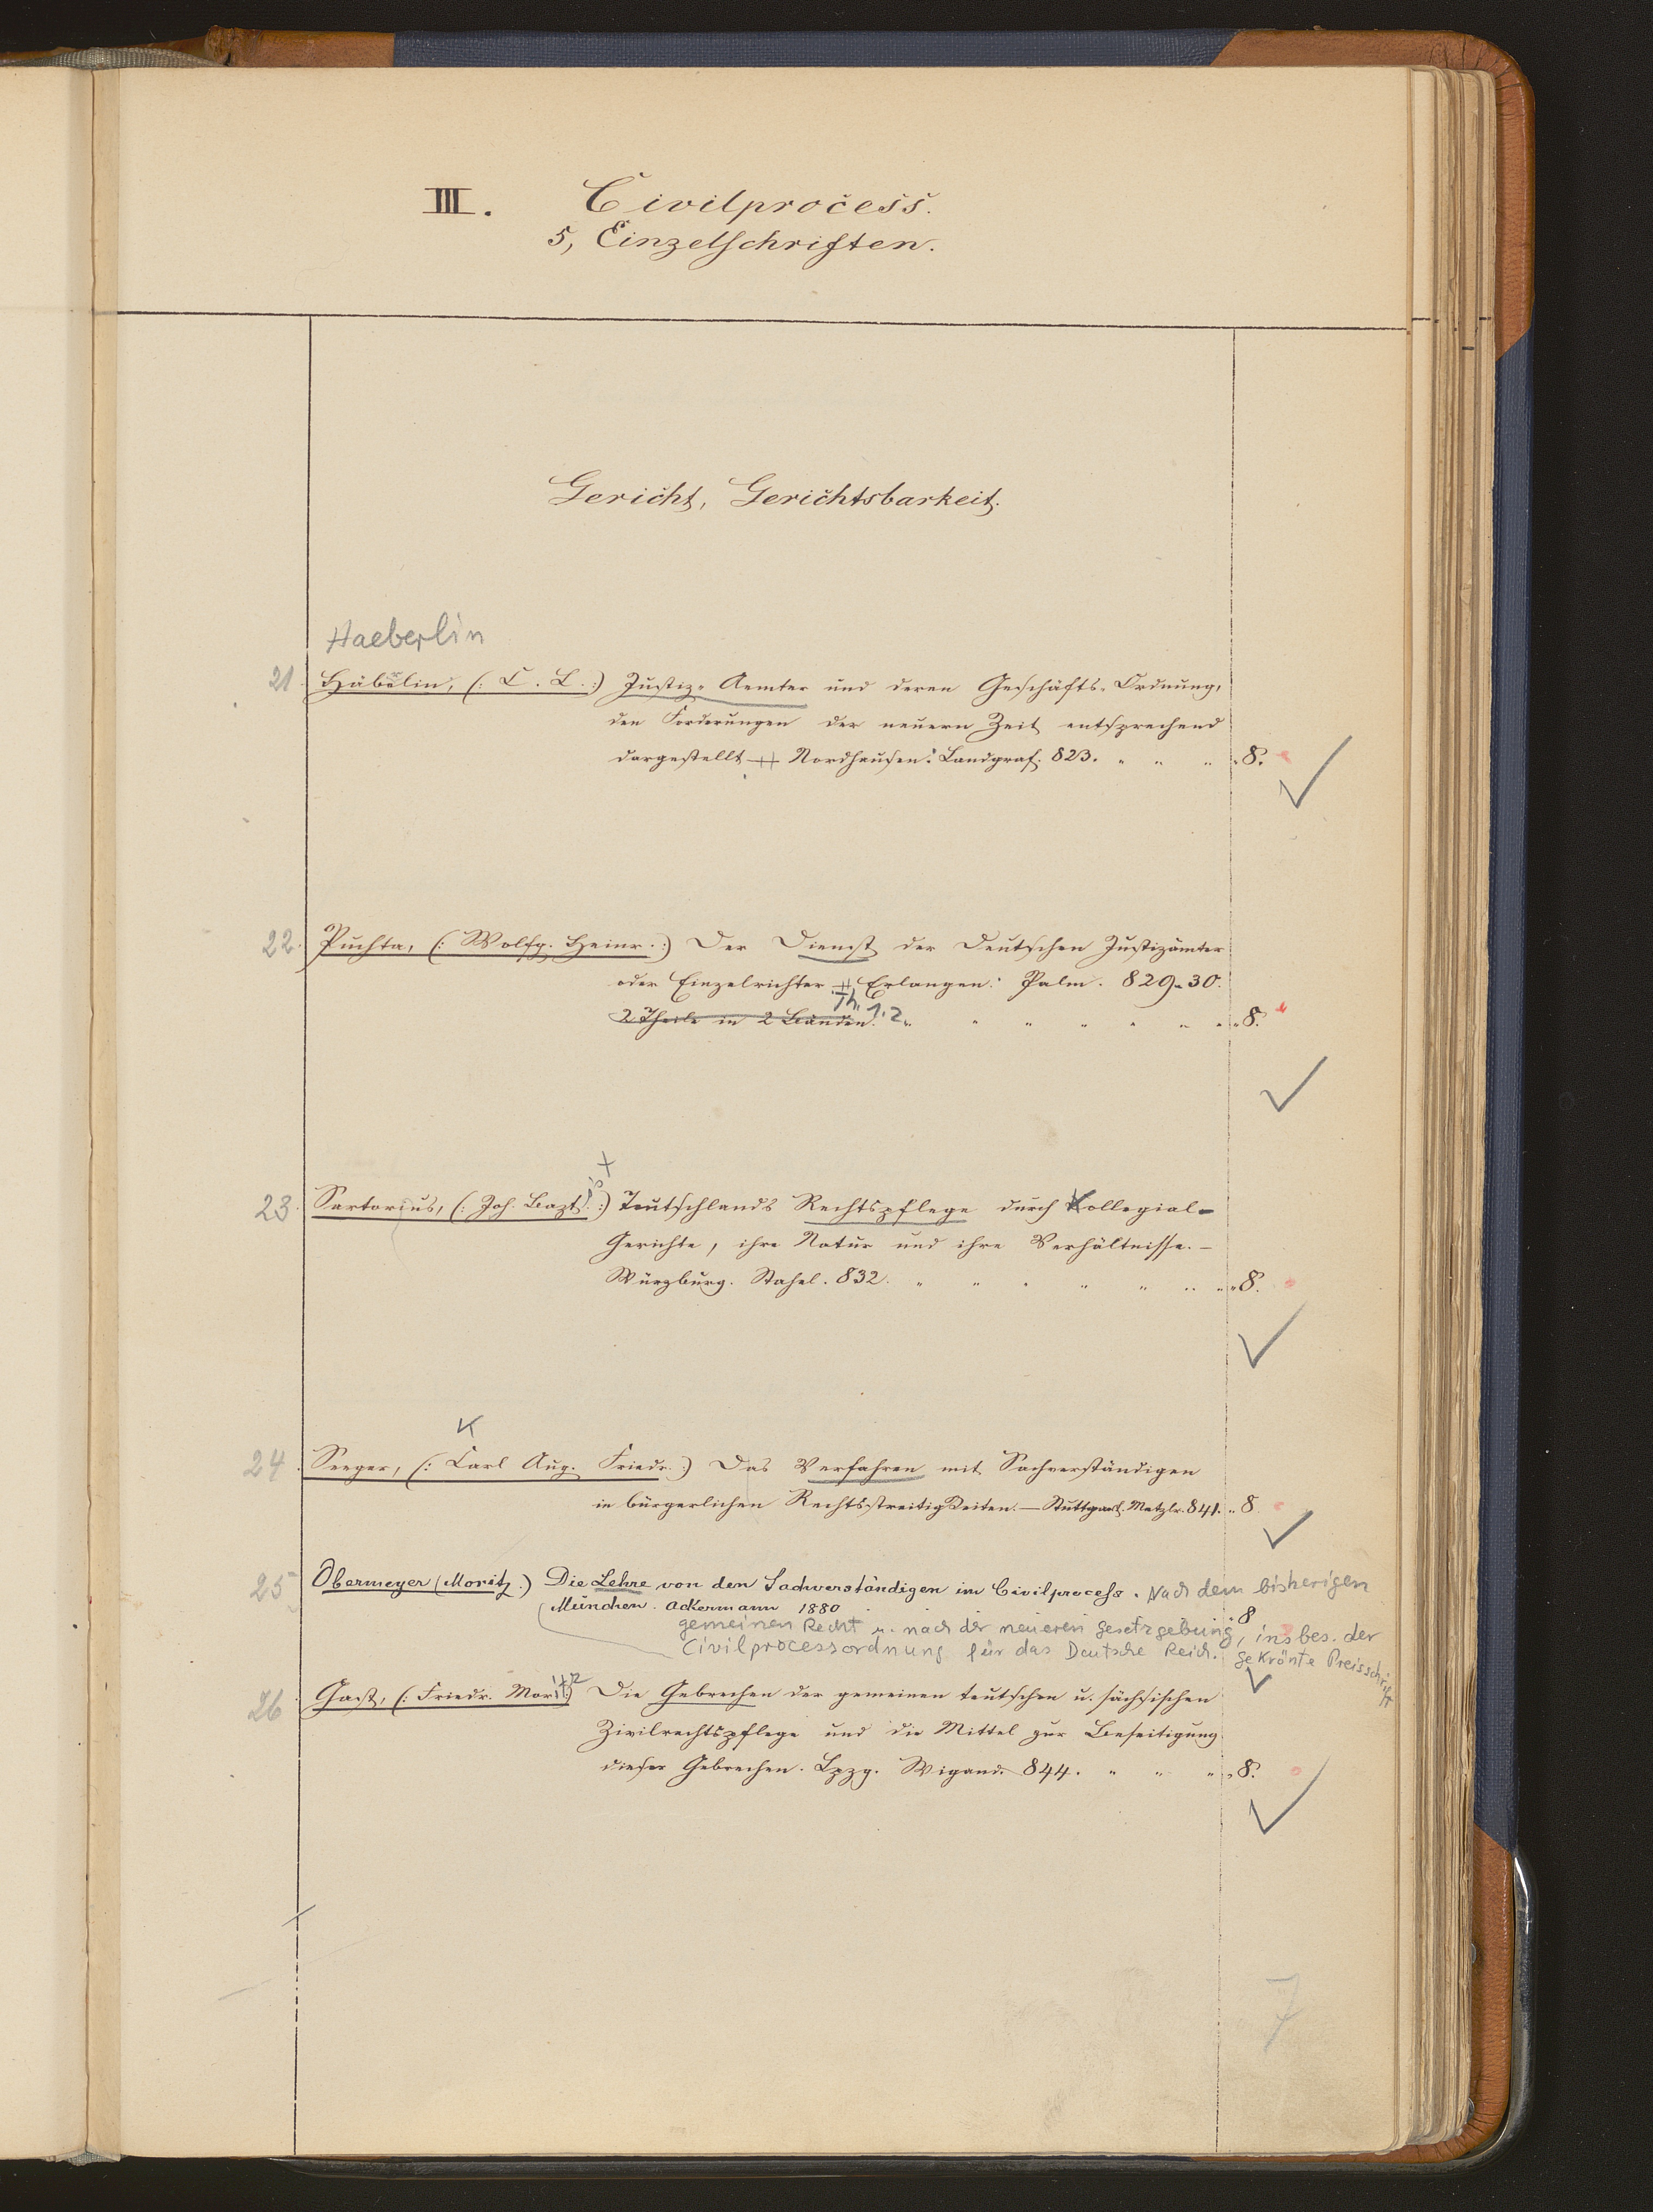 III. Civilprocess.
5, Einzelschriften.
Gericht, Gerichtsbarkeit.
Haeberlin
21. Häbelin, (: C. L. :) Justiz-Aemter und deren Geschäfts-Ordnung,
den Forderungen der neuern Zeit entsprechend
dargestellt. Nordhausen: Landgraf. 823. " " " 8.
22. Puchta, (: Wolfg. Heinr. :) Der Dienst der Deutschen Justizämter
oder Einzelrichter. Erlangen: Palm. 829-30.
Th. 1. 2
2 Theile in 2 Bänden. " " " " " " 8.
23. Sartorius, (: Joh. Bapt. :) Teutschlands Rechtspflege durch Kollegial-
Gerichte, ihre Natur und ihre Verhältnisse. –
Würzburg. Stahel. 832. " " " " " " 8.
K
24. Seeger, (: Carl Aug. Friedr. :) Das Verfahren mit Sachverständigen
in bürgerlichen Rechtsstreitigkeiten. — Stuttgart. Metzler. 841. " 8.
25 Obermeyer (Moritz.) Die Lehre von den Sachverständigen im Civilprocess. Nach dem bisherigen
München. Ackermann 1880 8
gemeinen Recht u. nach der neueren Gesetzgebung, insbes. der
Civilprocessordnung für das Deutsche Reich. Gekrönte Preisschrift
26. Gast, (: Friedr. Moritz :) Die Gebrechen der gemeinen teutschen u. sächsischen
Zivilrechtspflege und die Mittel zur Beseitigung
dieser Gebrechen. Lpzg. Wigand. 844. " " " 8.
7